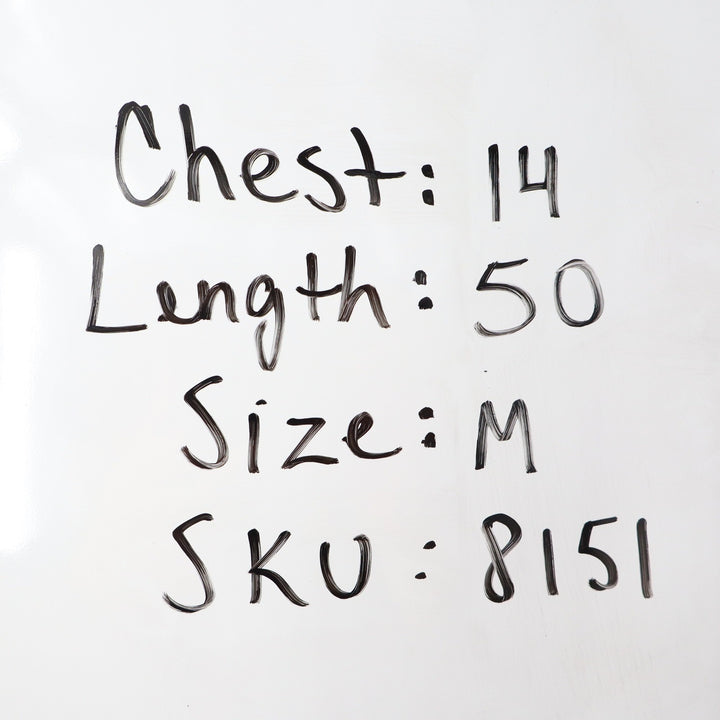 Chest: 14
Length: 50
Size: M
SKU: 8151